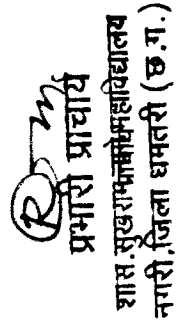 प्रभारी प्राचार्य
शास. सुखराम नागे महाविद्यालय
नगरी, जिला धमतरी (छ.ग.)